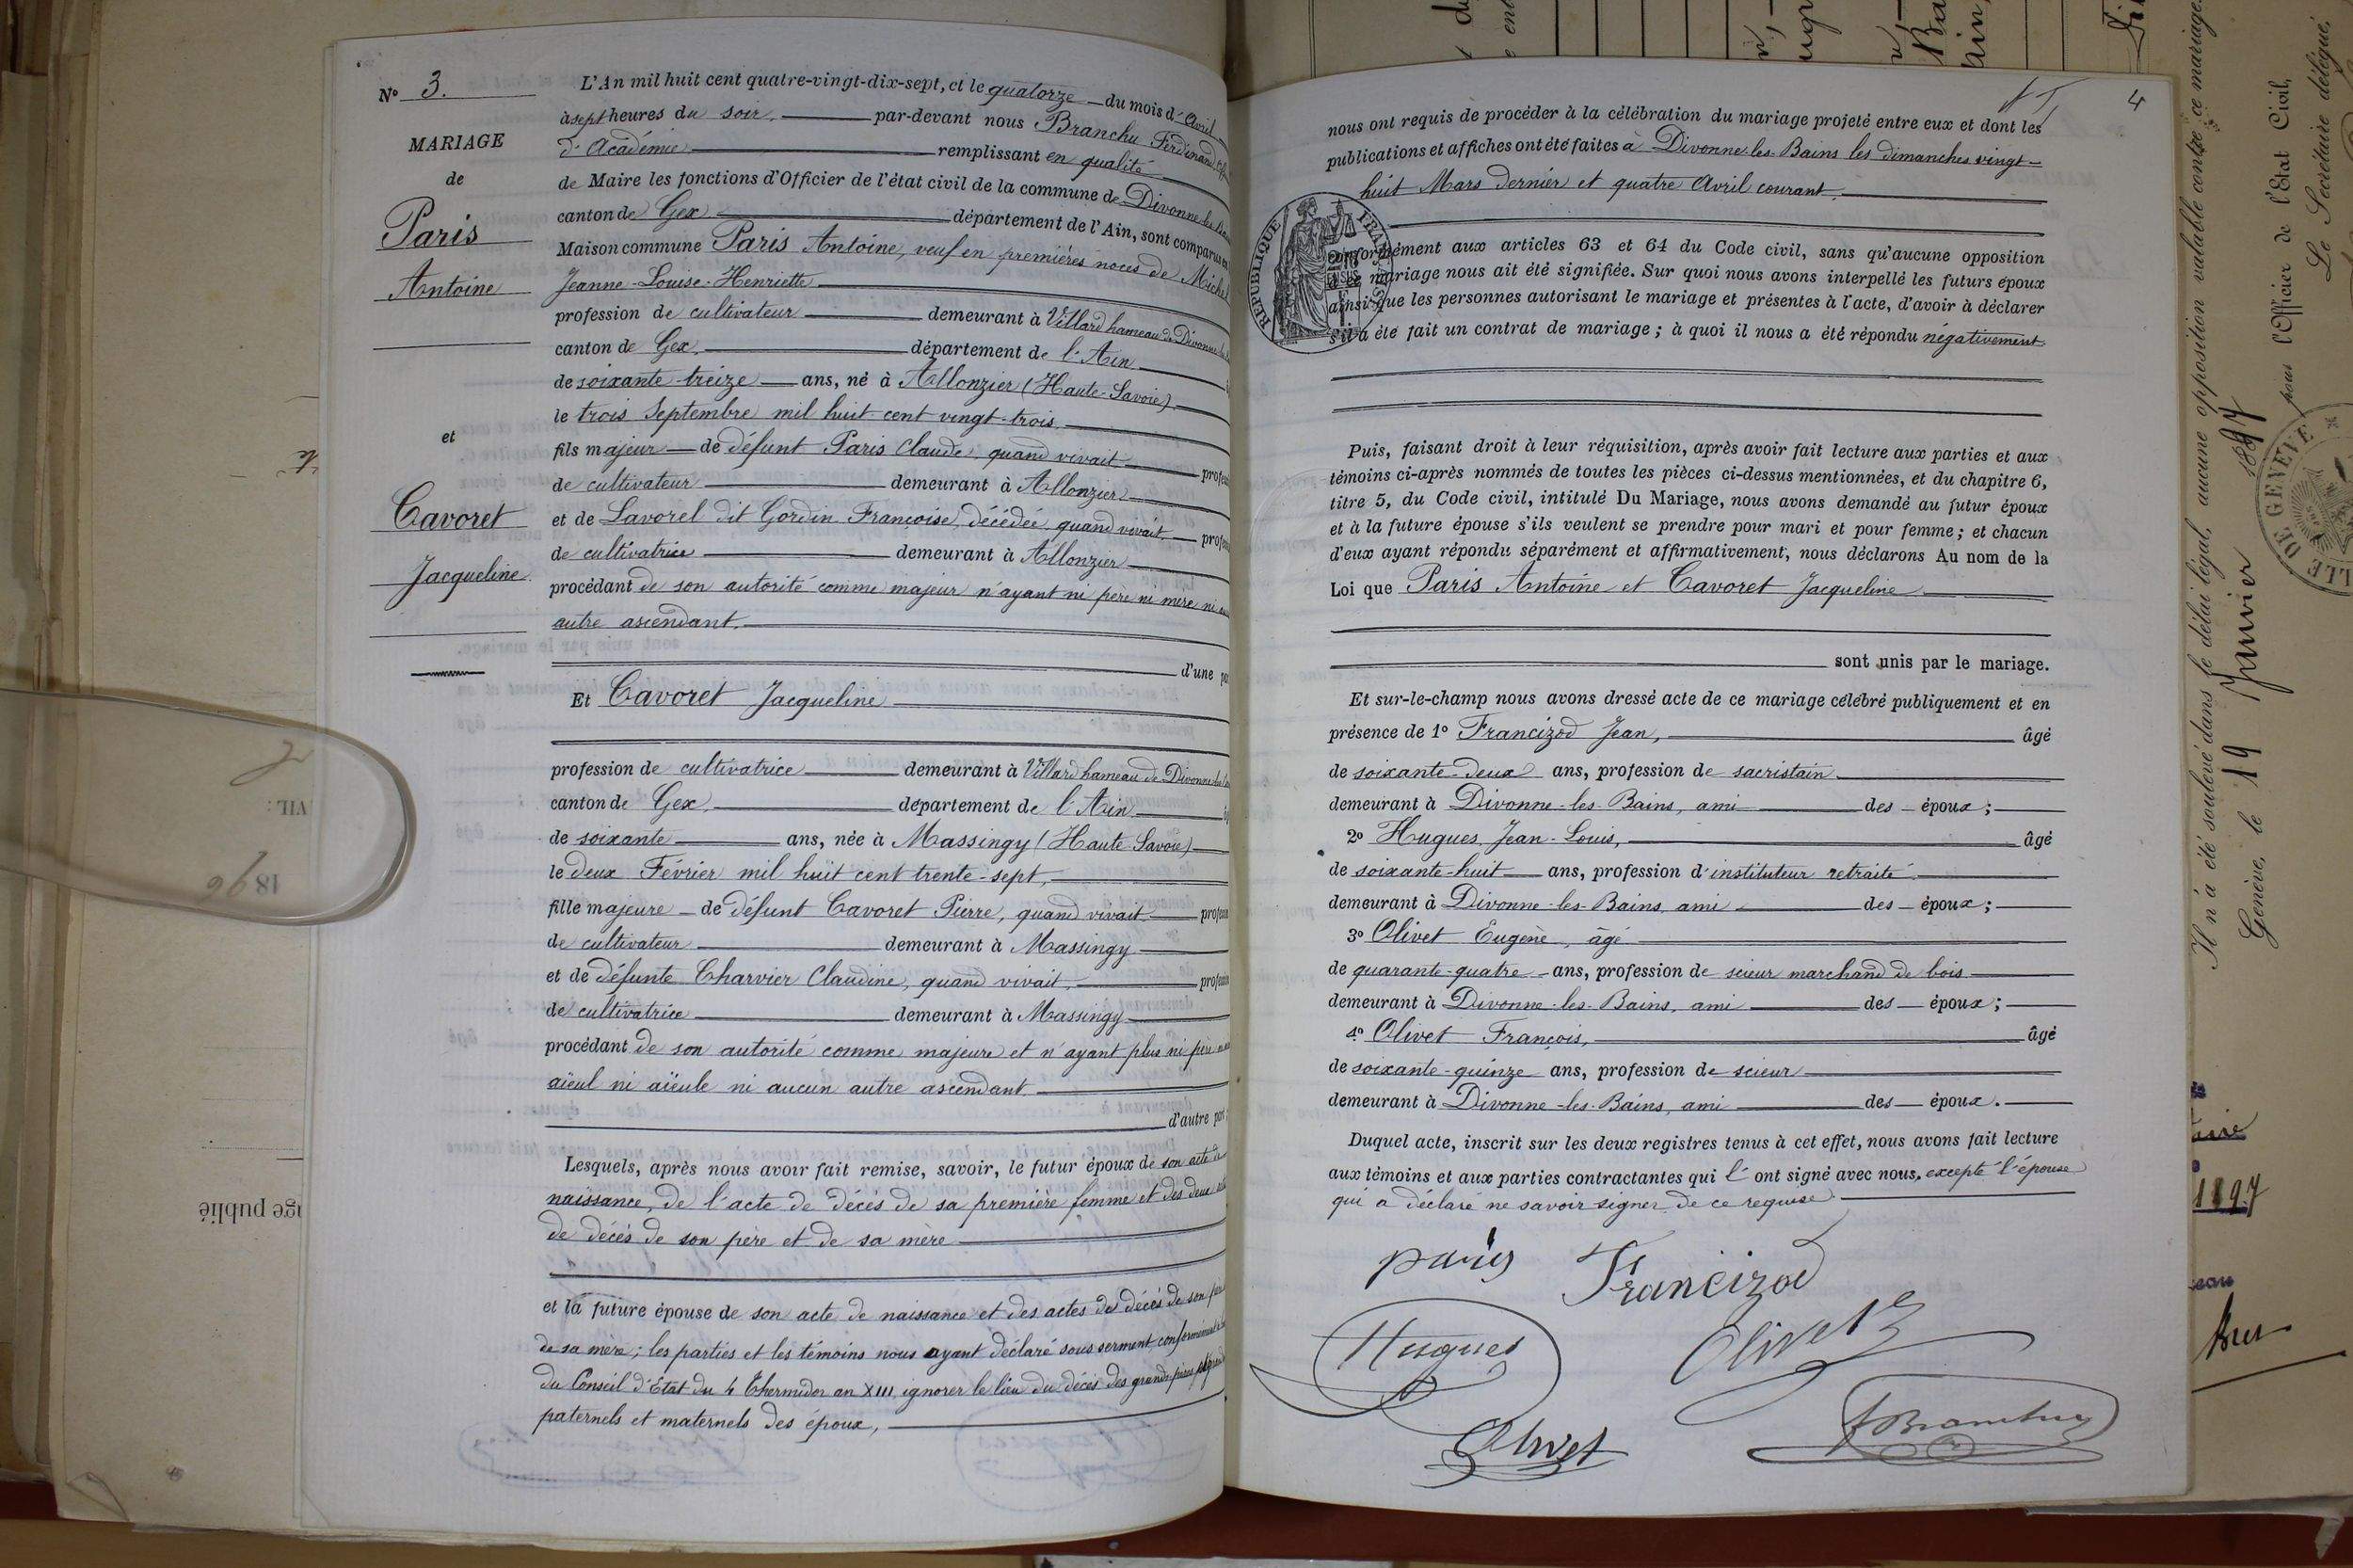 N° 3.
MARIAGE
de
Paris
Antoine
et
Cavoret
Jacqueline
L'An mil huit cent quatre-vingt-dix-sept, et le quatorze du mois d'Avril
à sept heures du soir, par-devant nous Branchu Ferdinand,
d'Académie remplissant en qualité
de Maire les fonctions d'Officier de l'état civil de la commune de Divonne les
canton de Gex département de l'Ain, sont comparus
Maison commune Paris Antoine, veuf en premières noces de Michel
Jeanne-Louise-Henriette
profession de cultivateur demeurant à Villard hameau de Divonne
canton de Gex, département de l'Ain
de soixante-treize ans, né à Allonzier (Haute-Savoie)
le trois Septembre mil huit-cent vingt-trois
fils majeur de défunt Paris Claude, quand vivait
de cultivateur demeurant à Allonzier
et de Lavorel dit Gordin Françoise, décédée, quand vivait,
de cultivatrice demeurant à Allonzier
procédant de son autorité comme majeur n'ayant ni père ni mère ni
autre ascendant.
d'une
Et Cavoret Jacqueline
profession de cultivatrice demeurant à Villard hameau de Divonne
canton de Gex, département de l'Ain
de soixante ans, née à Massingy (Haute-Savoie)
le deux Février mil huit cent trente-sept,
fille majeure de défunt Cavoret Pierre, quand vivait
de cultivateur demeurant à Massingy
et de défunte Charvier Claudine, quand vivait,
de cultivatrice demeurant à Massingy
procédant de son autorité comme majeure et n'ayant plus ni père
aïeul ni aïeule ni aucun autre ascendant.
d'autre part
Lesquels, après nous avoir fait remise, savoir, le futur époux de son acte de
naissance, de l'acte de décès de sa première femme et des deux
de décès de son père et de sa mère
et la future épouse de son acte de naissance et des actes de décès de son
de sa mère; les parties et les témoins nous ayant déclaré sous serment, conformément
du Conseil d'État du 4 Thermidor an XIII, ignorer le lieu du décès des grands-pères
paternels et maternels des époux,
4
nous ont requis de procéder à la célébration du mariage projeté entre eux et dont les
publications et affiches ont été faites à Divonne-les-Bains les dimanches vingt-
huit Mars dernier et quatre Avril courant,
RÉPUBLIQUE FRANÇAISE
conformément aux articles 63 et 64 du Code civil, sans qu'aucune opposition
à ce mariage nous ait été signifiée. Sur quoi nous avons interpellé les futurs époux
ainsi que les personnes autorisant le mariage et présentes à l'acte, d'avoir à déclarer
s'il a été fait un contrat de mariage; à quoi il nous a été répondu négativement.
Puis, faisant droit à leur réquisition, après avoir fait lecture aux parties et aux
témoins ci-après nommés de toutes les pièces ci-dessus mentionnées, et du chapitre 6,
titre 5, du Code civil, intitulé Du Mariage, nous avons demandé au futur époux
et à la future épouse s'ils veulent se prendre pour mari et pour femme; et chacun
d'eux ayant répondu séparément et affirmativement, nous déclarons Au nom de la
Loi que Paris Antoine et Cavoret Jacqueline
sont unis par le mariage.
Et sur-le-champ nous avons dressé acte de ce mariage célébré publiquement et en
présence de 1° Francizod Jean, âgé
de soixante-deux ans, profession de sacristain
demeurant à Divonne-les-Bains, ami des époux;
2° Hugues Jean-Louis, âgé
de soixante-huit ans, profession d'instituteur retraité
demeurant à Divonne-les-Bains, ami des époux;
3° Olivet Eugène, âgé
de quarante-quatre ans, profession de scieur marchand de bois
demeurant à Divonne-les-Bains, ami des époux;
4° Olivet François, âgé
de soixante-quinze ans, profession de scieur
demeurant à Divonne-les-Bains, ami des époux.
Duquel acte, inscrit sur les deux registres tenus à cet effet, nous avons fait lecture
aux témoins et aux parties contractantes qui l'ont signé avec nous, excepté l'épouse
qui a déclaré ne savoir signer de ce requise
paris Francizod
Hugues Olivet
Olivet F Branchu
Il n'a été soulevé dans le délai légal, aucune opposition valable contre ce mariage.
Genève, le 19 Janvier 1897
pour l'Officier de l'Etat Civil,
Le Secrétaire délégué,
VILLE DE GENÈVE
1897
VIL :
1896
age publié